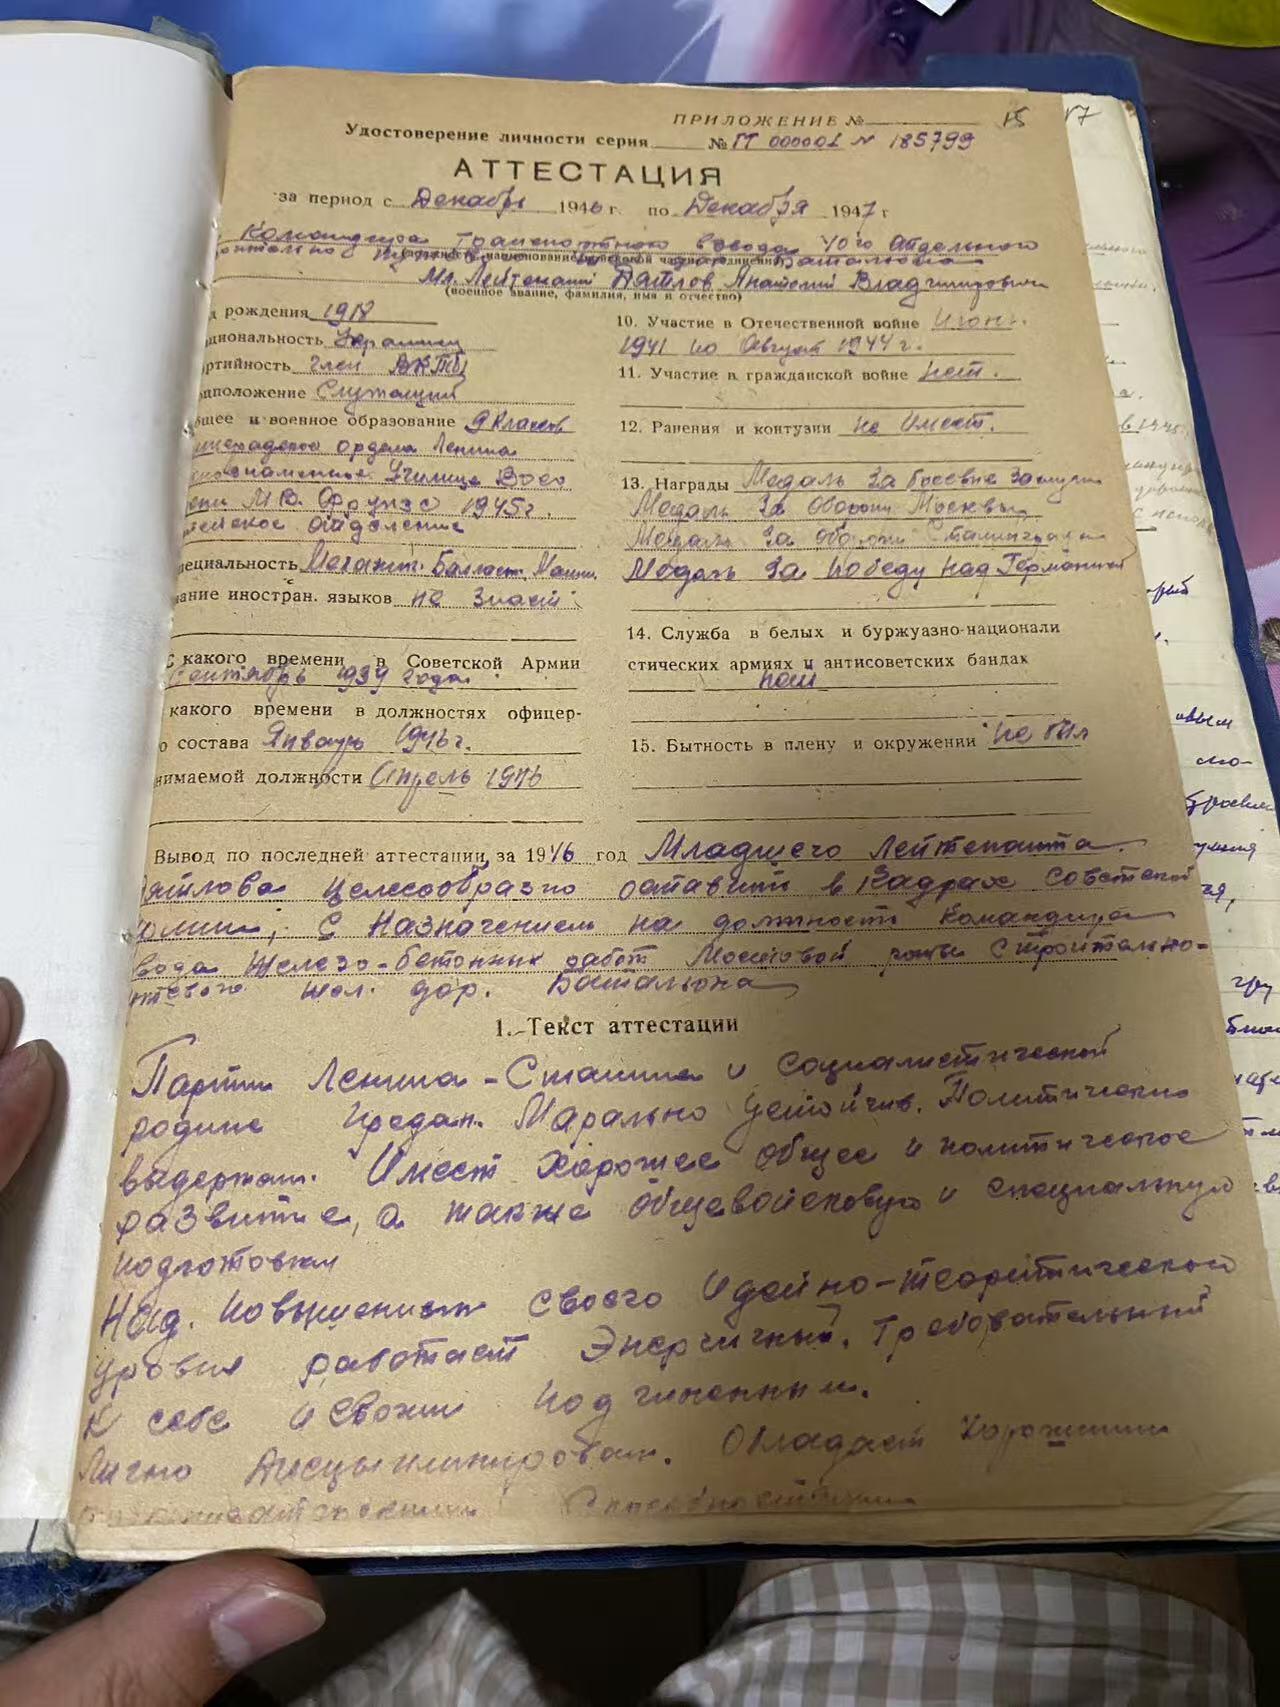 15 17
ПРИЛОЖЕНИЕ №
Удостоверение личности серия № ГТ 000001 № 185799
АТТЕСТАЦИЯ
за период с Декабрь 1946 г. по Декабря 1947 г
Командира транспортного взвода 40го Отдельного
батальона
Мл. Лейтенант Дятлов Анатолий Владимирович
(военное звание, фамилия, имя и отчество)
д рождения 1918
циональность Украинец
ртийность член ВКПб
оцположение Служащий
бщее и военное образование 9 классов
Ордена Ленина
нознаменное Училище Восо
ени М. В. Фрунзе 1945 г.
отделение
пециальность Механик. Балласт. Машин.
нание иностран. языков не знает
С какого времени в Советской Армии
Сентябрь 1939 года
какого времени в должностях офицер-
о состава Январь 1946 г.
нимаемой должности Апрель 1946
10. Участие в Отечественной войне Июнь
1941 по Август 1944 г.
11. Участие в гражданской войне нет.
12. Ранения и контузии не Имеет.
13. Награды Медаль За боевые заслуги
Медаль За оборону Москвы
Медаль За оборону Сталинграда
Медаль За победу над Германией
14. Служба в белых и буржуазно-национали
стических армиях и антисоветских бандах
нет
15. Бытность в плену и окружении не был
Вывод по последней аттестации за 1946 год Младшего Лейтенанта
Дятлова целесообразно оставить в Кадрах Советской
Армии, с Назначением на должность Командира
взвода Железо-бетонных работ Мостовой роты Строительно-
путевого жел. дор. Батальона
1. Текст аттестации
Партии Ленина-Сталина и социалистической
родине предан. Марально устойчив. Политически
выдержан. Имеет хорошее общее и политическое
развитие, а также общевойсковую и специальную
подготовки
Над. повышением своего Идейно-теоретического
уровня работает Энергичный. Требовательный
к себе и своим подчиненным.
Лично дисцыплинирован. Обладает Хорошими
способностями